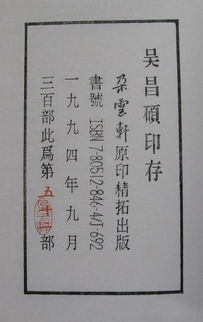 吴昌碩印存
朶雲軒原印精拓出版
書號 ISBN 7-80512-846-4/J·692
一九九四年九月
三百部此爲第五十部